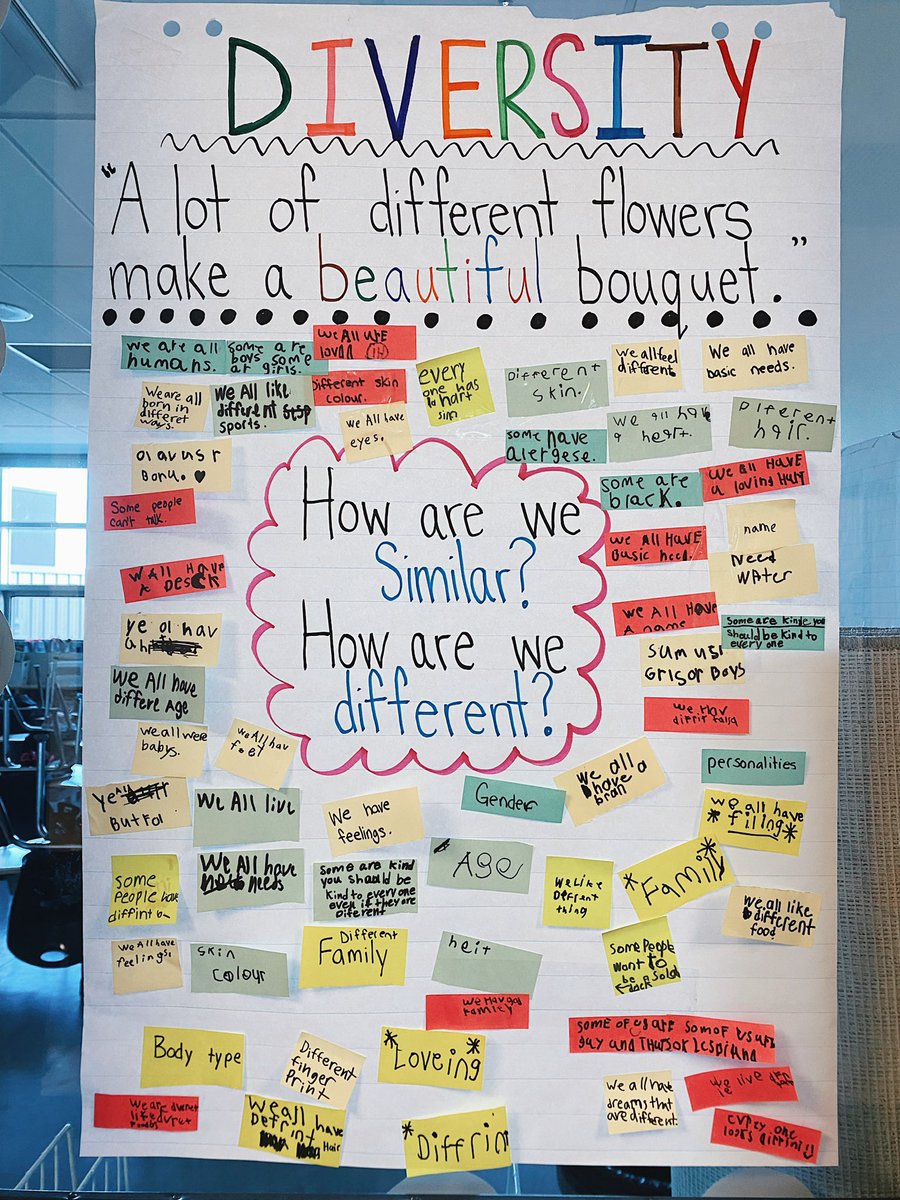 DIVERSITY
"A lot of different flowers
make a beautiful bouquet."
we are all
humans.
some are
boys some
at girls.
We All are
Different skin
colour.
every
one has
Different
skin.
we all feel
different.
We all have
basic needs.
We are all
born in
different
ways.
We All like
different
sports.
we All have
eyes.
some have
Alergese.
we all hav
a heart.
Different
hair.
Some people
can't talk.
some are
black.
we all HAVE
a loving
name
How are we
Similar?
How are we
different?
we All HAVE
basic need.
Need
WAter
WAll HAVE
A DesCk
we All HAVE
A name
Some are kinde you
should be kind to
every one
ye ol hav
sum usI
GrIsor Boys
We All have
differe Age
we Hav
we all were
babys.
we All hav
feet
personalities
we all
have a
bran
Gender
ButFol
We All live
We have
feelings.
we all have
*filing*
some
People have
We All have
Needs
Some are kind
you should be
kind to every one
even if they are
Diferent
AGe
we Like
Defrent
thing
*Family
we all like
different
food
We All have
feelings.
skin
colour
Different
Family
heit
some People
wont to
be a Solder
we Hav
Family
some of us are
gay and
Body type
Different
finger
Print
*Loveing*
we all have
dreams that
are different.
we live
We are
We all have
Hair
*Diffrin
every one
looks